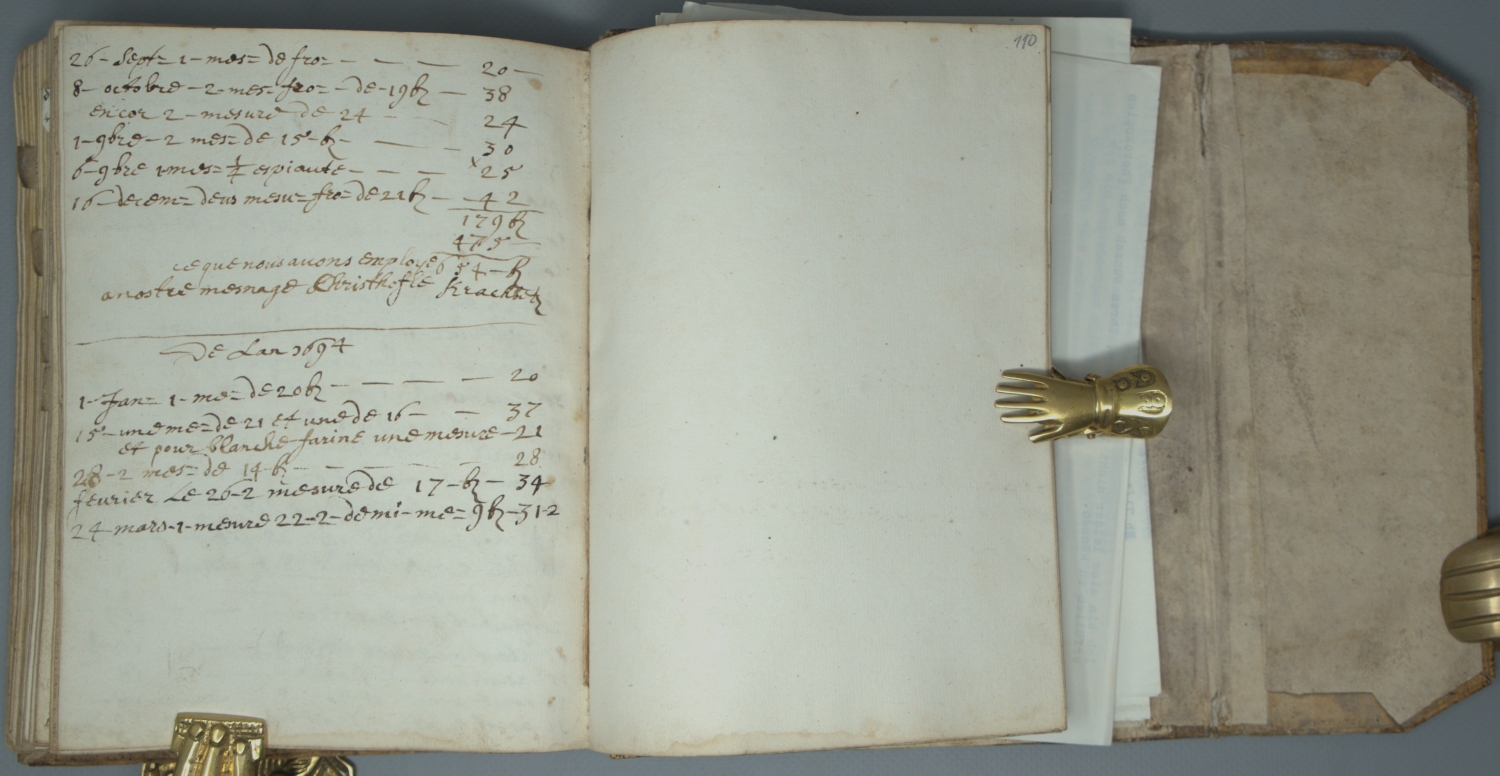 26 - Sept= 1 - mes= de fro= - - - - 20 -
8 - octobre - 2 - mes= fro= - de - 19 bz - 38
encor 2 - mesure de 24 - - - 24
1 - 9bre - 2 mes= de 15 - bz - - - 30
6 - 9bre 1 mes= espiaute - - - - x 25
16 - decem= deus mesu= fro= de 21 bz - 42
179 bz
475 -
ce que nous avons employe 654 - bz
a nostre mesnage Christhofle
De Lan 1694
1 - Jan= 1 - me= de 20 bz - - - - - 20
15 - une me= de 21 et une de 16 - - 37
et pour blanche farine une mesure - 21
28 - 2 mes= de 14 bz - - - - - 28
fevrier Le 26 - 2 mesure de 17 - bz - 34
24 - mars - 1 - mesure 22 - 2 - demi - me= 9 bz - 31 - 2
110